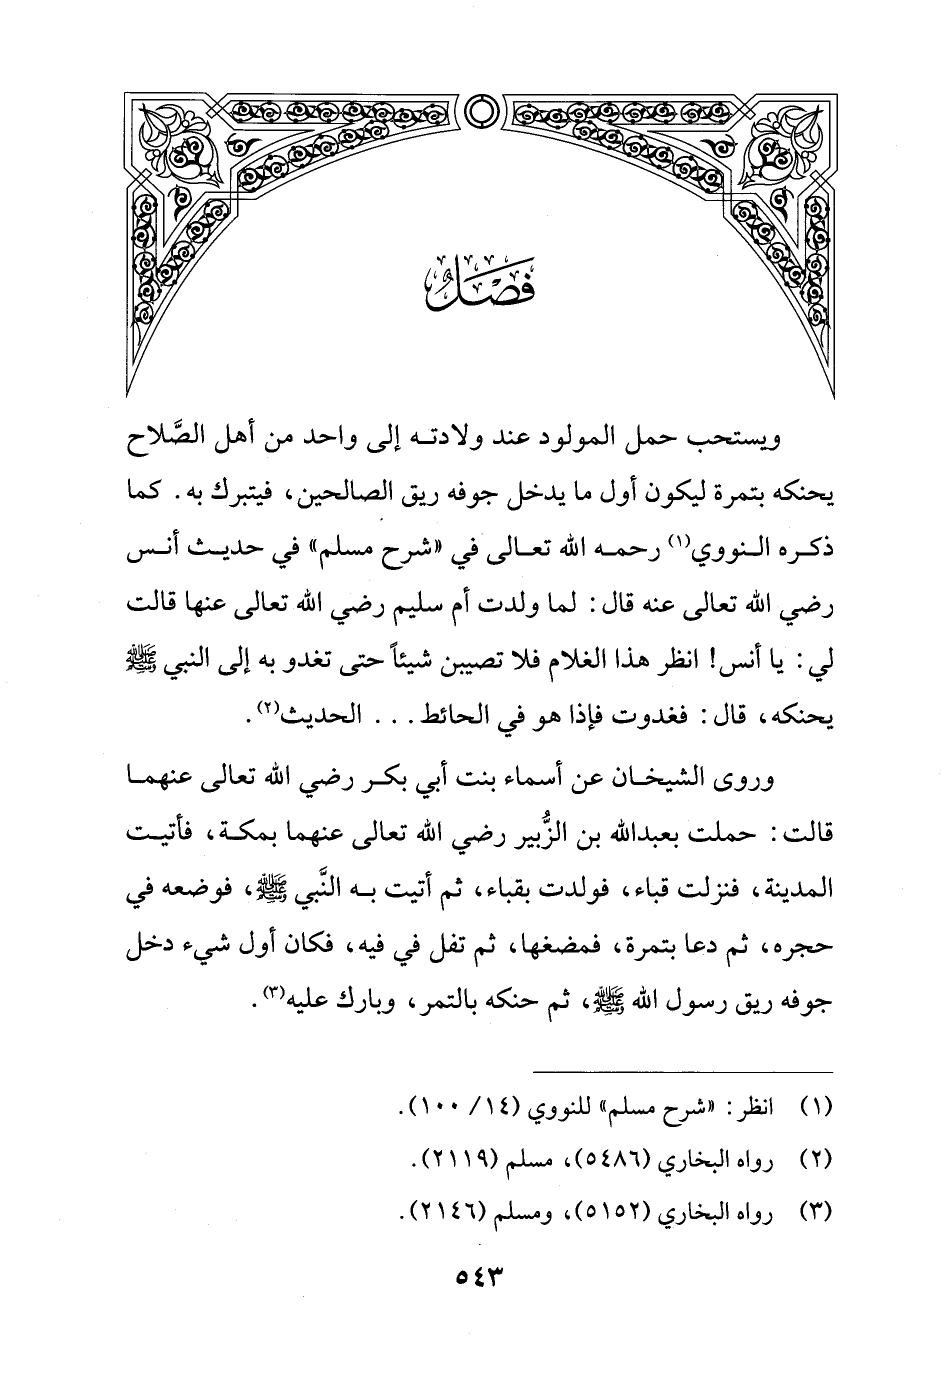 فَصْلٌ
ويستحب حمل المولود عند ولادته إلى واحد من أهل الصَّلاح
يحنكه بتمرة ليكون أول ما يدخل جوفه ريق الصالحين، فيتبرك به. كما
ذكره النووي(١) رحمه الله تعالى في «شرح مسلم» في حديث أنس
رضي الله تعالى عنه قال: لما ولدت أم سليم رضي الله تعالى عنها قالت
لي: يا أنس! انظر هذا الغلام فلا تصيبن شيئاً حتى تغدو به إلى النبي ﷺ
يحنكه، قال: فغدوت فإذا هو في الحائط... الحديث(٢).
وروى الشيخان عن أسماء بنت أبي بكر رضي الله تعالى عنهما
قالت: حملت بعبدالله بن الزُّبير رضي الله تعالى عنهما بمكة، فأتيت
المدينة، فنزلت قباء، فولدت بقباء، ثم أتيت به النَّبي ﷺ، فوضعه في
حجره، ثم دعا بتمرة، فمضغها، ثم تفل في فيه، فكان أول شيء دخل
جوفه ريق رسول الله ﷺ، ثم حنكه بالتمر، وبارك عليه(٣).
(١) انظر: «شرح مسلم» للنووي (١٤/ ١٠٠).
(٢) رواه البخاري (٥٤٨٦)، مسلم (٢١١٩).
(٣) رواه البخاري (٥١٥٢)، ومسلم (٢١٤٦).
٥٤٣